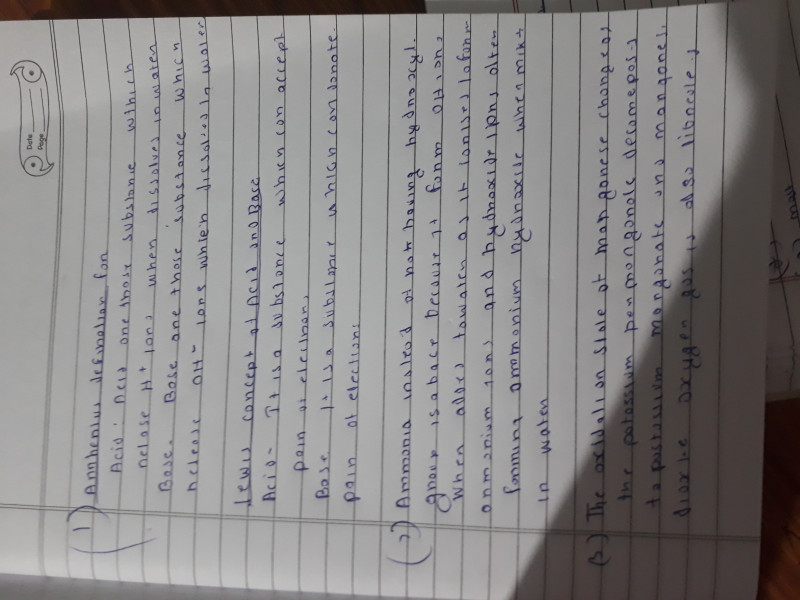 Date
Page
(1) Arrhenius defination for
Acid: Acid are those substance which
relase H+ ions when dissolves in water
Base- Base are those substance which
release OH- ions which dissolves in water
Lewis concept of Acid and Base
Acid- It is a substance which can accept
pair of electron.
Base It is a substance which can donate
pair of electron.
(2) Ammonia instead of not having hydroxyl
group is a base because it form OH ions
when added to water as it ionises to form
ammonium ions and hydroxide ions often
forming ammonium hydroxide when mixs
in water
(3) The oxidation state of manganese changes as
the potassium permanganate decomposes
to potassium manganate and manganese
dioxide oxygen gas is also liberate